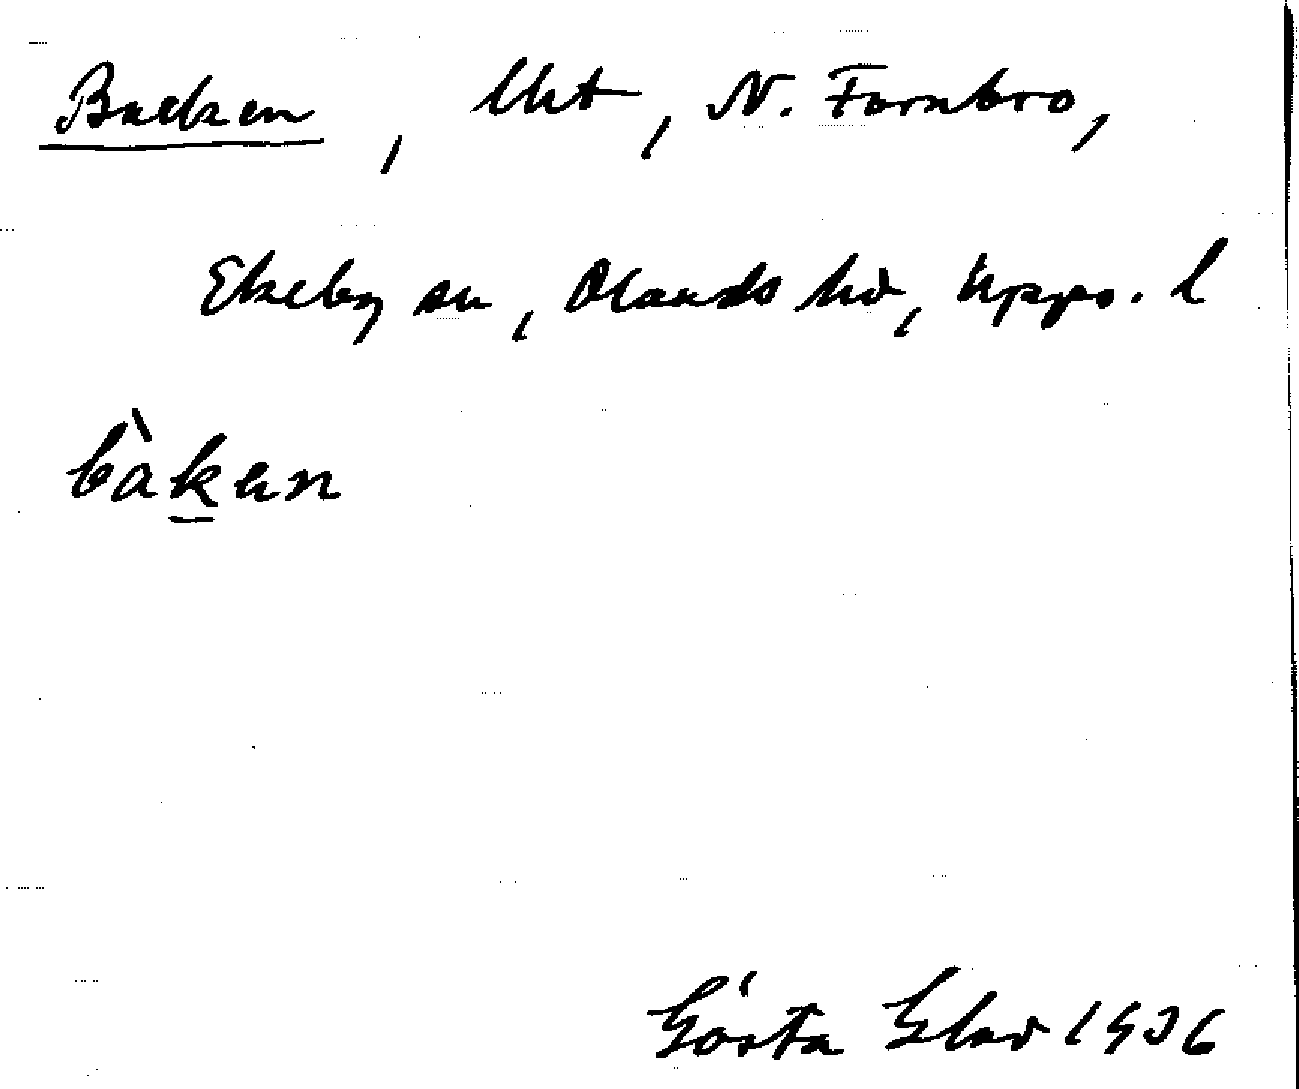 Backen, lht, N. Fornbro,
Ekeby sn, Olands hd, Upps. l
bàkan
Gösta Glad 1936